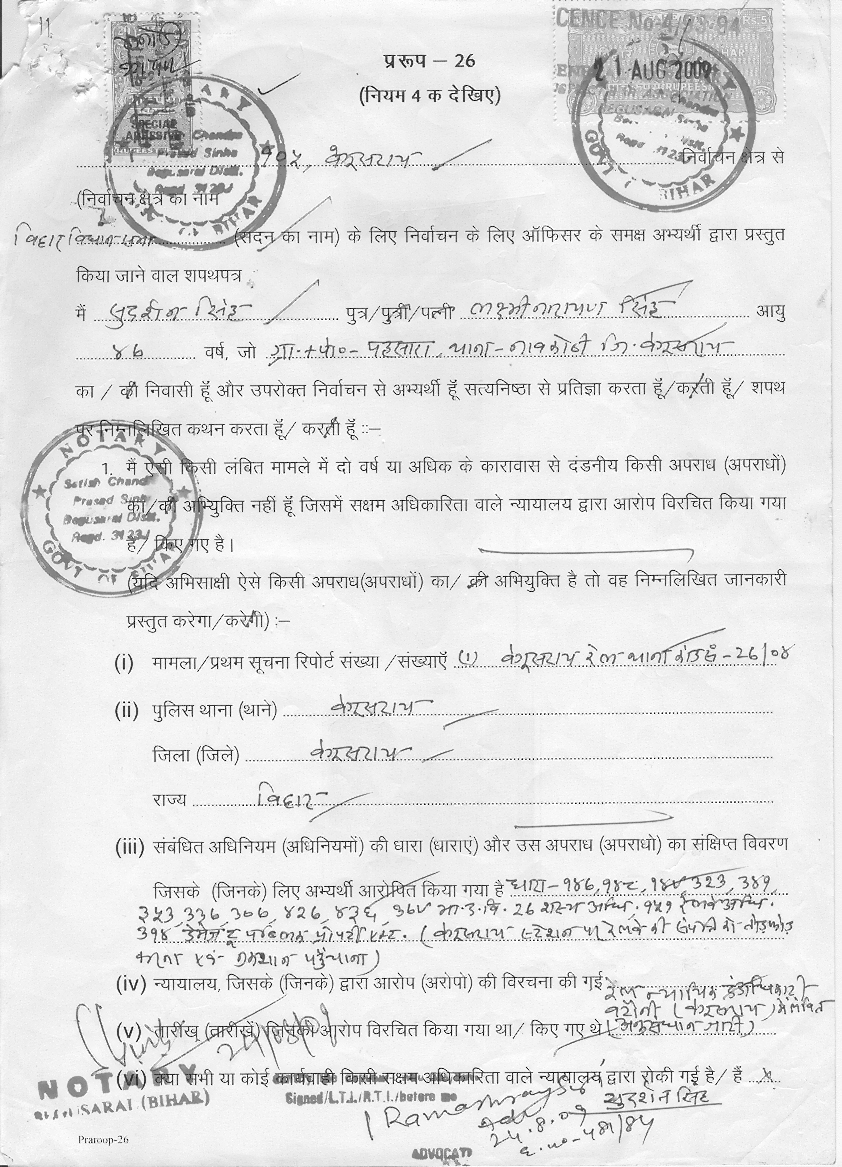 11
CENCE No-4/ -94
21 AUG 2009
SPECIAL
ADHESIVE
प्ररूप – 26
(नियम 4 क देखिए)
NOTARY
Chandra
Prasad Sinha
Begusarai Distt.
Regd. 3123/
GOVT OF BIHAR
बेगूसराय निर्वाचन क्षेत्र से
(निर्वाचन क्षेत्र का नाम
बिहार विधान सभा (सदन का नाम) के लिए निर्वाचन के लिए ऑफिसर के समक्ष अभ्यर्थी द्वारा प्रस्तुत
किया जाने वाल शपथपत्र
मैं सुदर्शन सिंह पुत्र/पुत्री/पत्नी लक्ष्मी नारायण सिंह आयु
४६ वर्ष, जो ग्रा.+पो०- पहसारा, थाना- नावकोठी जि. बेगूसराय
का / की निवासी हूँ और उपरोक्त निर्वाचन से अभ्यर्थी हूँ सत्यनिष्ठा से प्रतिज्ञा करता हूँ/करती हूँ/ शपथ
पर निम्नलिखित कथन करता हूँ/ करती हूँ ::–
NOTARY
Satish Chand
Prasad Sinh
Begusarai Distt.
Regd. 3123/
GOVT OF BIHAR
1. मैं ऐसी किसी लंबित मामले में दो वर्ष या अधिक के कारावास से दंडनीय किसी अपराध (अपराधों)
का/की अभियुक्ति नहीं हूँ जिसमें सक्षम अधिकारिता वाले न्यायालय द्वारा आरोप विरचित किया गया
है/ किए गए है।
(यदि अभिसाक्षी ऐसे किसी अपराध(अपराधों) का/ की अभियुक्ति है तो वह निम्नलिखित जानकारी
प्रस्तुत करेगा/करेगी) :–
(i) मामला/प्रथम सूचना रिपोर्ट संख्या /संख्याएँ (1) बेगूसराय रेल थाना कांड सं - 26/०४
(ii) पुलिस थाना (थाने) बेगूसराय
जिला (जिले) बेगूसराय
राज्य बिहार
(iii) संबंधित अधिनियम (अधिनियमों) की धारा (धाराएं) और उस अपराध (अपराधो) का संक्षिप्त विवरण
जिसके (जिनके) लिए अभ्यर्थी आरोपित किया गया है धारा- १४७, १४८, १४९ 323, 341,
३५३, 336, 307, 426, ४३६ भा.द.वि. 26 शस्त्र अधि. १५१ रेलवे अधि.
डेमेज टू पब्लिक प्रोपर्टी एक्ट. (बेगूसराय स्टेशन पर रेलवे की संपत्ति को तोड़फोड़
करना एवं नुकसान पहुँचाना)
(iv) न्यायालय, जिसके (जिनके) द्वारा आरोप (अरोपो) की विरचना की गई रेल न्यायिक दंडाधिकारी
बरौनी (बेगूसराय) में लंबित
(v) तारीख (तारीखें) जिनको आरोप विरचित किया गया था/ किए गए थे (अनुसंधान जारी)
(vi) क्या सभी या कोई कार्यवाही किसी सक्षम अधिकारिता वाले न्यायालय द्वारा रोकी गई है/ हैं x
NOTARY
SARAI (BIHAR)
Signed/L.T.I./R.T.I./before me
सुदर्शन सिंह
Adv
24.8.09
E. no-481/84
Praroop-26
ADVOCATE